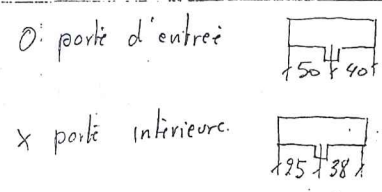 O: porte d'entreé
50 40
X porte intérieure.
25 38